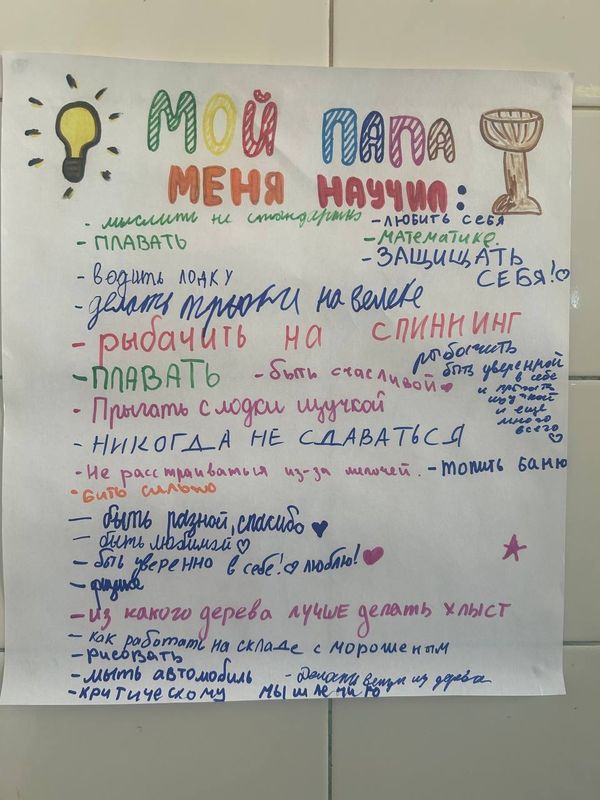 МОЙ ПАПА
МЕНЯ НАУЧИЛ:
- мыслить не стандартно
- ЛЮБИТЬ СЕБЯ
- ПЛАВАТЬ
- МАТЕМАТИКЕ.
- ЗАЩИЩАТЬ
СЕБЯ!
- водить лодку
- делать трюки на велеке
- рыбачить на спиннинг
- ПЛАВАТЬ
- быть счасливой
рыбачить
быть уверенной
в себе
и прыгать
щучкой
и еще
много
всего
- Прыгать с лодки щучкой
- НИКОГДА НЕ СДАВАТЬСЯ
- Не расстраиваться из-за мелочей.
- топить баню
- бить сильно
- быть разной, спасибо
- быть любимой
- быть уверенно в себе! люблю!
- физике
- из какого дерева лучше делать хлыст
- как работать на складе с мороженым
- рисовать
- мыть автомобиль
- Делать вещи из дерева
- критическому мышлению